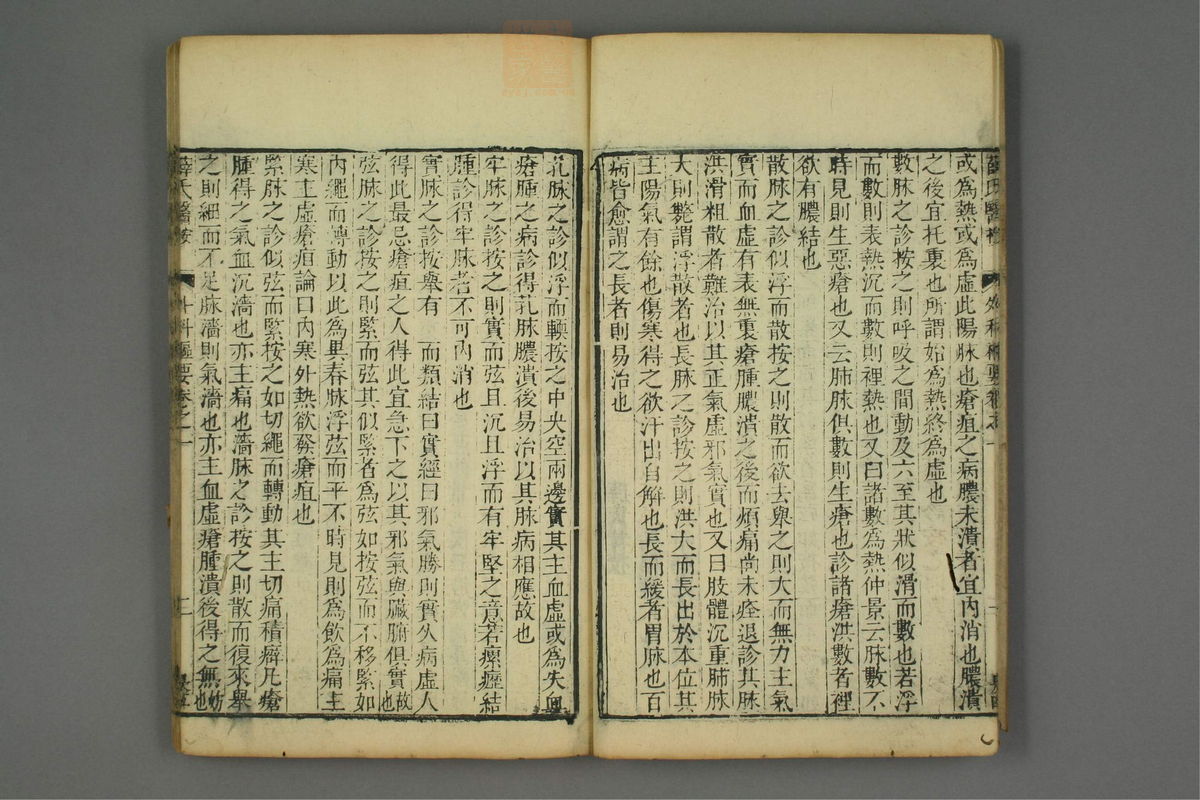 薛氏醫按
或為熱或為虛此陽脉也瘡疽之病膿未潰者宜內消也膿潰
之後宜托裏也所謂始為熱終為虛也
數脉之診按之則呼吸之間動及六至其狀似滑而數也若浮
而數則表熱沉而數則裡熱也又曰諸數為熱仲景云脉數不
時見則生惡瘡也又云肺脉俱數則生瘡也診諸瘡洪數者裡
欲有膿結也
散脉之診似浮而散按之則散而欲去舉之則大而無力主氣
實而血虛有表無裏瘡腫膿潰之後而煩痛尚未痊退診其脉
洪滑粗散者難治以其正氣虛邪氣實也又曰肢體沉重肺脉
大則斃謂浮散者也長脉之診按之則洪大而長出於本位其
主陽氣有餘也傷寒得之欲汗出自解也長而緩者胃脉也百
病皆愈謂之長者則易治也
芤脉之診似浮而輭按之中央空兩邊實其主血虛或為失血
瘡腫之病診得芤脉膿潰後易治以其脉病相應故也
牢脉之診按之則實而弦且沉且浮而有牢堅之意若瘰癧結
腫診得牢脉者不可內消也
實脉之診按舉有 而類結曰實經曰邪氣勝則實久病虛人
得此最忌瘡疽之人得此宜急下之以其邪氣與臟腑俱實故也
弦脉之診按之則緊而弦其似緊者為弦如按弦而不移緊如
內繩而轉動以此為異春脉浮弦而平不時見則為飲為痛主
寒主虛瘡疽論曰內寒外熱欲發瘡疽也
緊脉之診似弦而緊按之如切繩而轉動其主切痛積癖凡瘡
腫得之氣血沉濇也亦主痛也濇脉之診按之則散而復來舉
之則細而不足脉濇則氣濇也亦主血虛瘡腫潰後得之無妨也
薛氏醫按 外科樞要卷之一